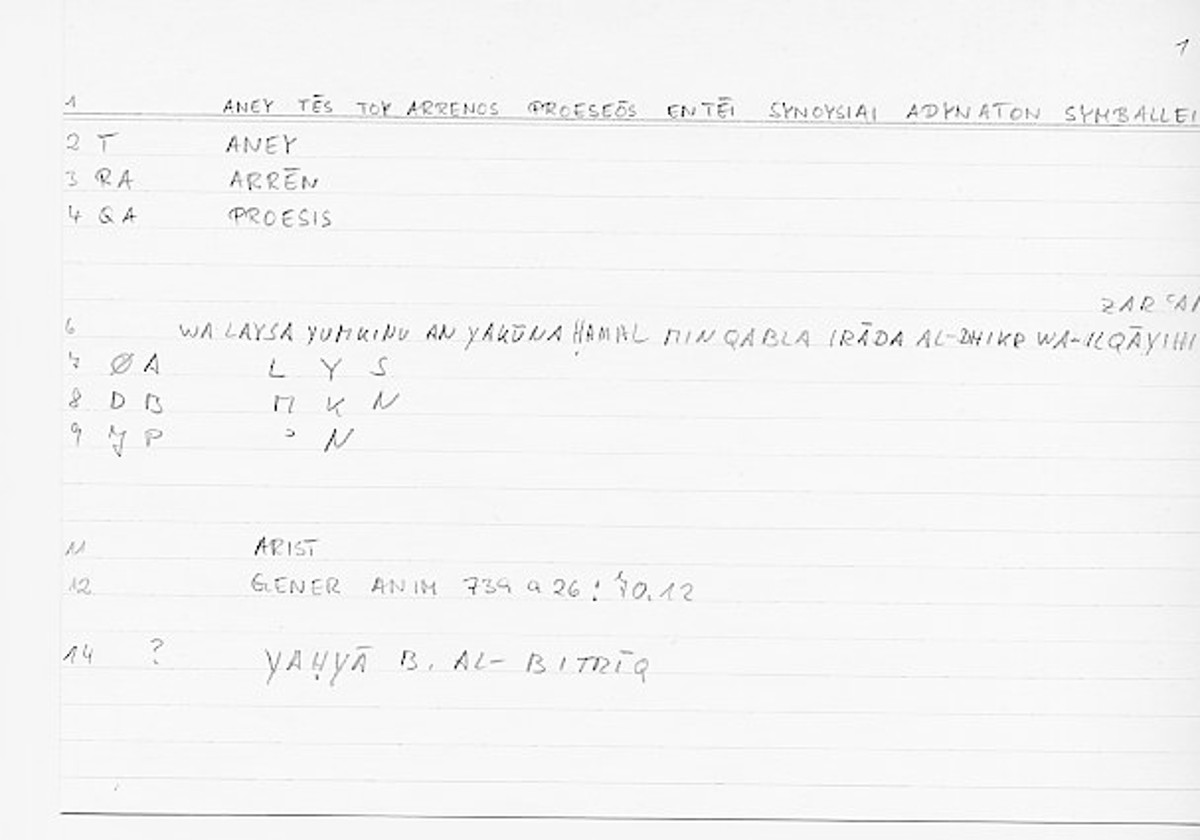 1
1 ANEY TĒS TOY ARRENOS PROESEŌS EN TĒI SYNOYSIAI ADYNATON SYMBALLEI
2 T ANEY
3 RA ARRĒN
4 QA PROESIS
ZAR ʿAI
6 WA LAYSA YUMKINU AN YAKŪNA ḤAMAL MIN QABLA IRĀDA AL-DHIKR WA-ILQĀYIHI
7 ØA L Y S
8 D B M K N
9 P ʾ N
11 ARIST
12 GENER ANIM 739 a 26 : 70.12
14 ? YAḤYĀ B. AL-BITRĪQ